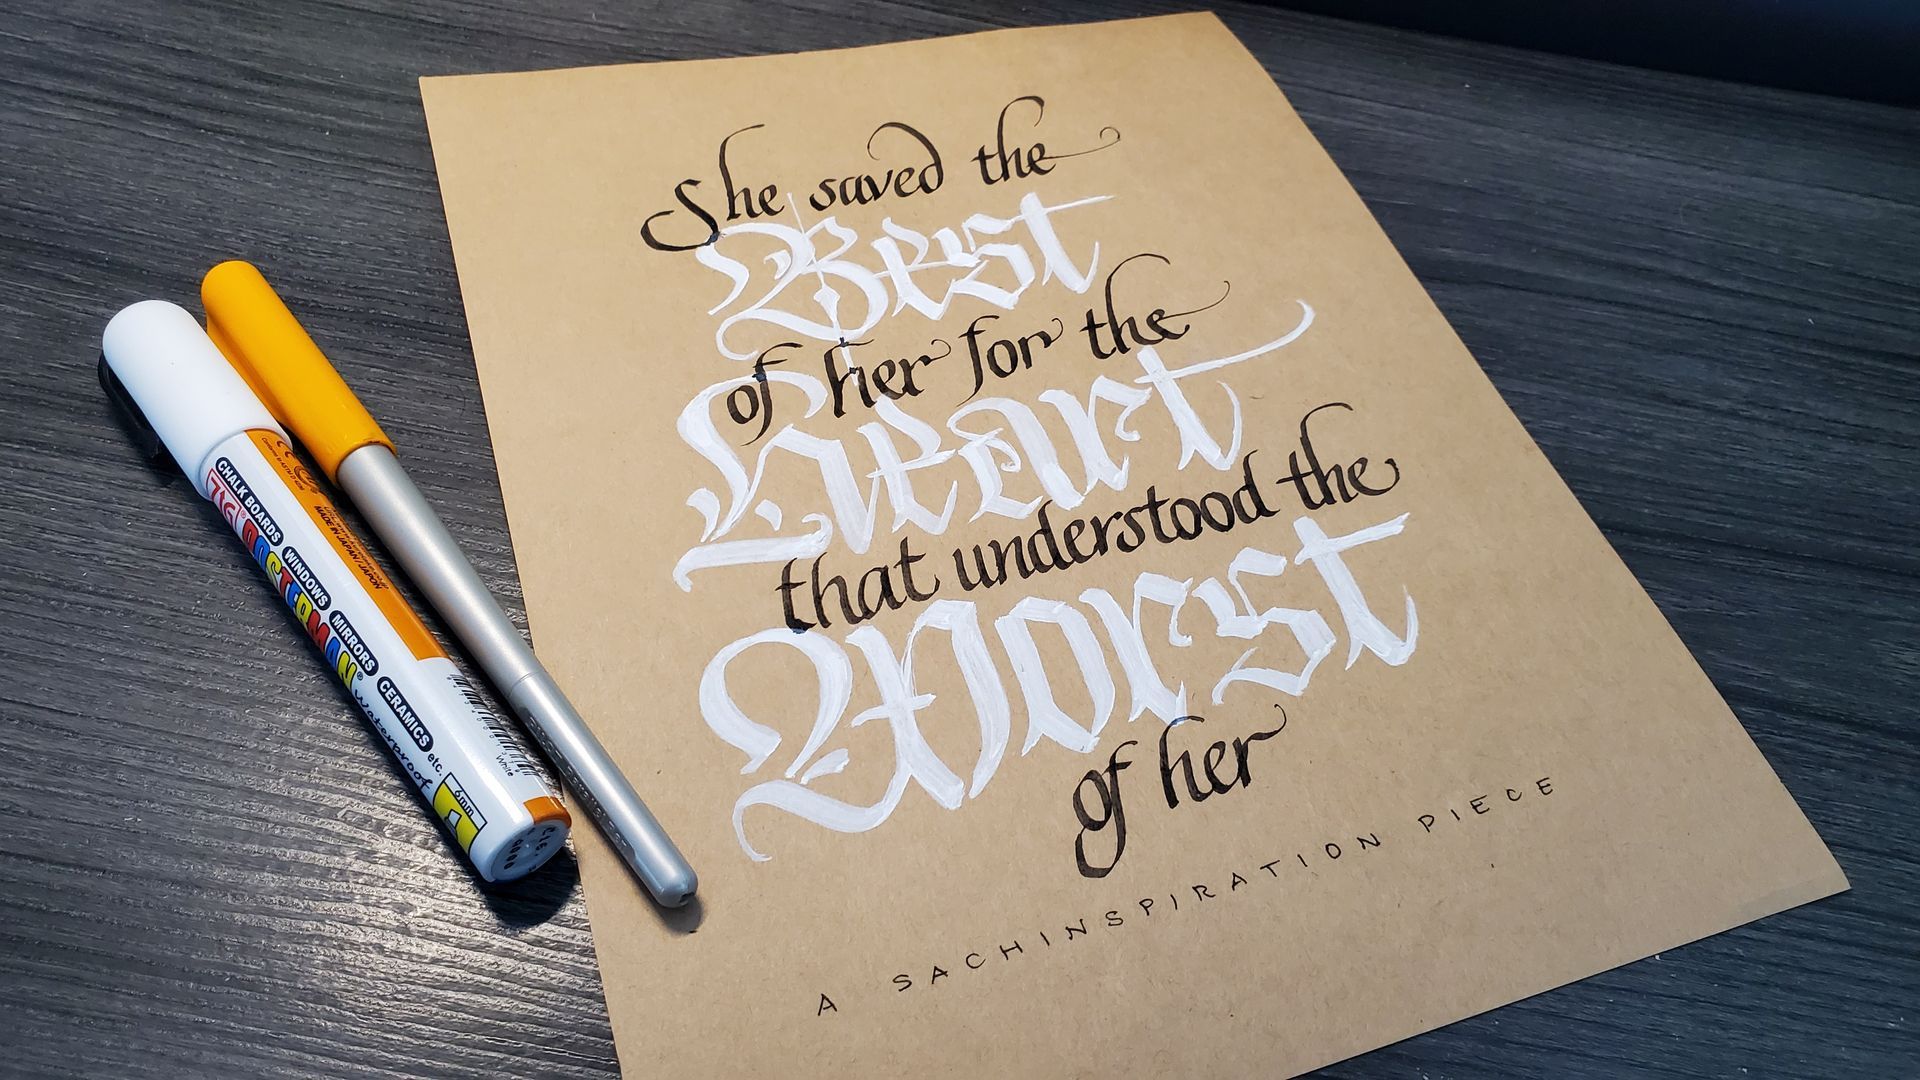 She saved the
Best
of her for the
Heart
that understood the
Worst
of her
A SACHINSPIRATION PIECE
CHALK BOARDS WINDOWS MIRRORS CERAMICS etc.
ZIG POSTERMAN® Waterproof
MADE IN JAPAN/JAPON
White
6mm